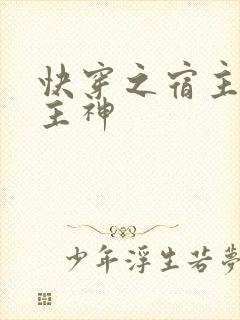 快穿之宿主
主神
少年浮生若夢